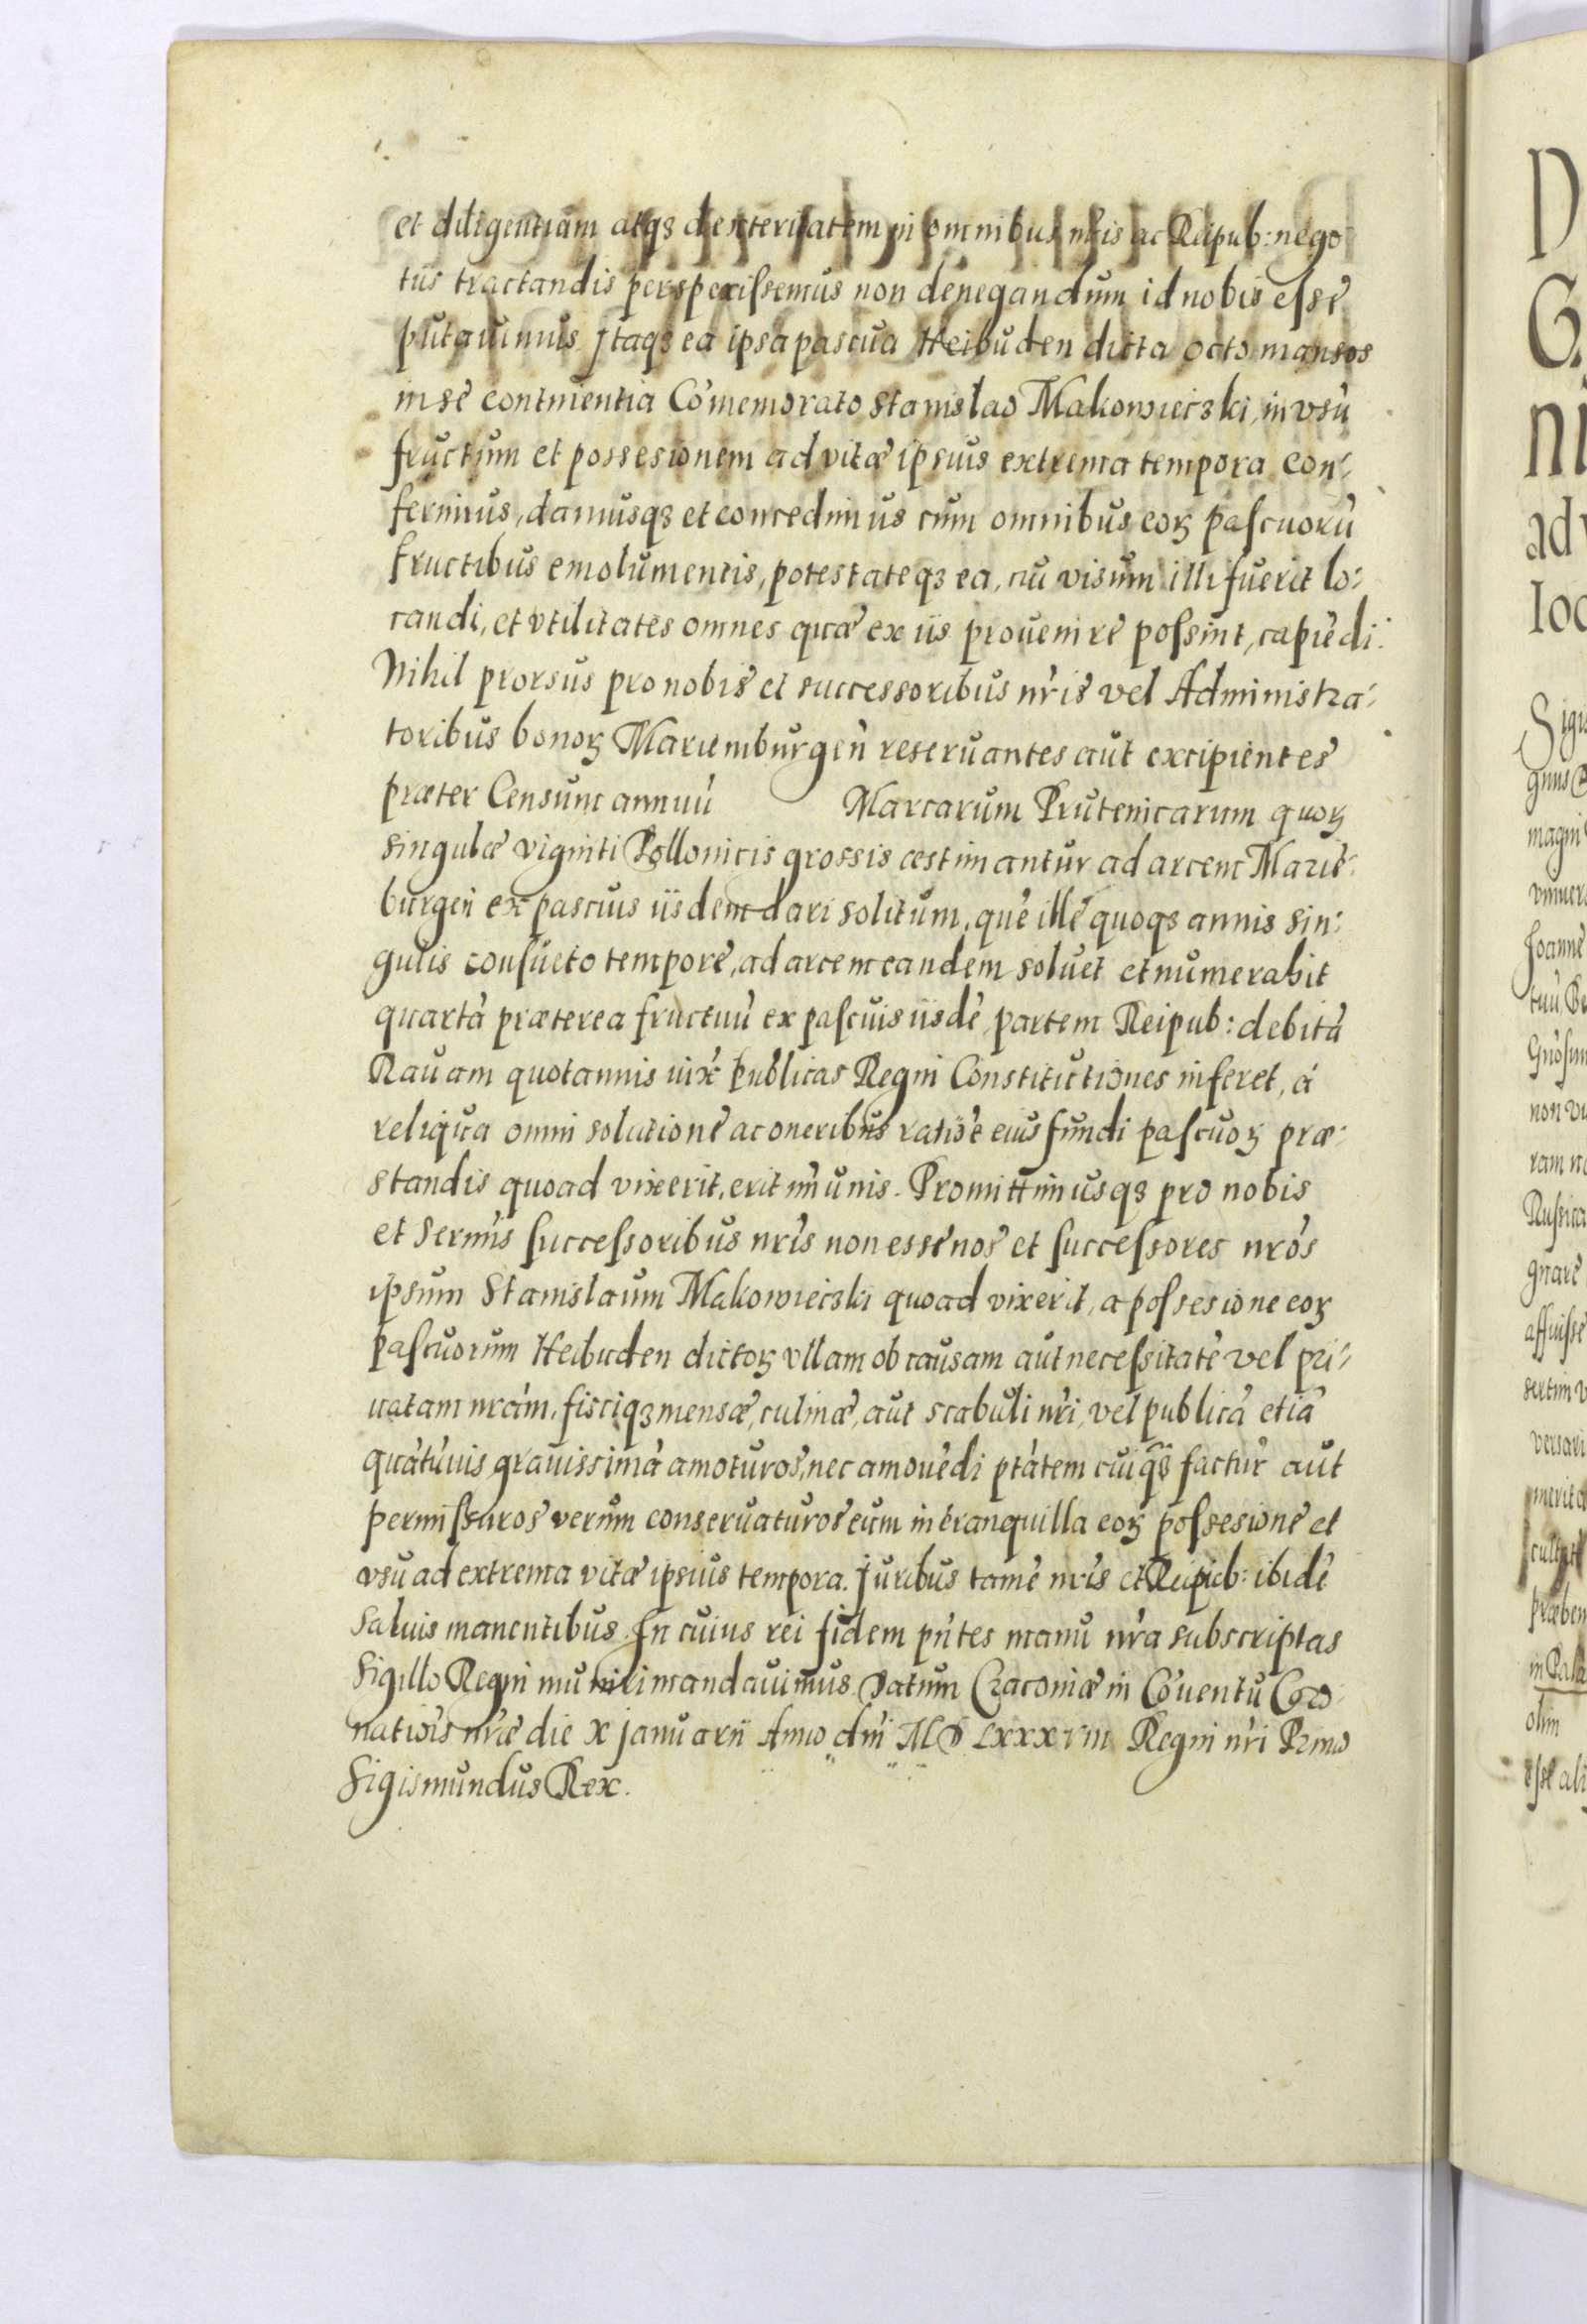 et diligentiam atqȝ dexteritatem in omnibus nr̃is ac Reipub: nego
tiis tractandis perspexissemus non denegandum id nobis esse
putauimus Itaqȝ ea ipsa pascua Heibuden dicta octo mansos
in se continentia Cõmemorato Stanislao Makowieczki, in vsũ
fructum et possesionem ad vitæ ipsius extrema tempora con-
ferimus, damusqȝ et concedimus cum omnibus eoꝝ pascuorũ
fructibus emolumentis, potestateqȝ ea, cũ visum illi fuerit lo-
candi, et vtilitates omnes quæ ex iis prouenire possint, capiẽdi.
Nihil prorsus pro nobis et successoribus nr̃is vel Administra-
toribus bonoꝝ Mariemburgeñ reseruantes aut excipientes
præter Censum annuũ Marcarum Prutenicarum quoꝝ
singulæ viginti Pollonicis grossis æstimantur ad arcem Mariẽ-
burgeñ ex pascuis iisdem dari solitum, quẽ ille quoqȝ annis sin-
gulis consueto tempore, ad arcem eandem soluet et numerabit
quartã præterea fructuũ ex pascuis iisdẽ partem Reipub: debitã
Rauam quotannis iux̃ publicas Regni Constitutiones inferet, á
reliqua omni solutione ac oneribus ratiõe eius fundi pascuoꝝ præ-
standis quoad vixerit, erit im̃unis. Promittimusqȝ pro nobis
et Serm̃is successoribus nr̃is non esse nos et successores nr̃os
ipsum Stanislaum Makowieczki quoad vixerit, a possesione eoꝝ
pascuorum Heibuden dictoꝝ vllam ob causam aut necessitatẽ vel pri-
uatam nr̃am, fisciqȝ mensæ, culinæ, aut stabuli nr̃i, vel publicã etiã
quãtũuis grauissimã amoturos, nec amouẽdi ptãtem cuiqȝ factur̃ aut
permissuros verum conseruaturos eum in tranquilla eoꝝ possesione et
vsu ad extrema vitæ ipsius tempora. Juribus tamẽ nr̃is et Reipub: ibidẽ
saluis manentibus. In cuius rei fidem pñtes manu nr̃a subscriptas
Sigillo Regni muniri mandauimus. Datum Cracouiæ in Cõuentu Coro
natiõis nr̃æ die X Januarii Anno dñi M D LXXXVIII Regni nr̃i Primo
Sigismundus Rex.